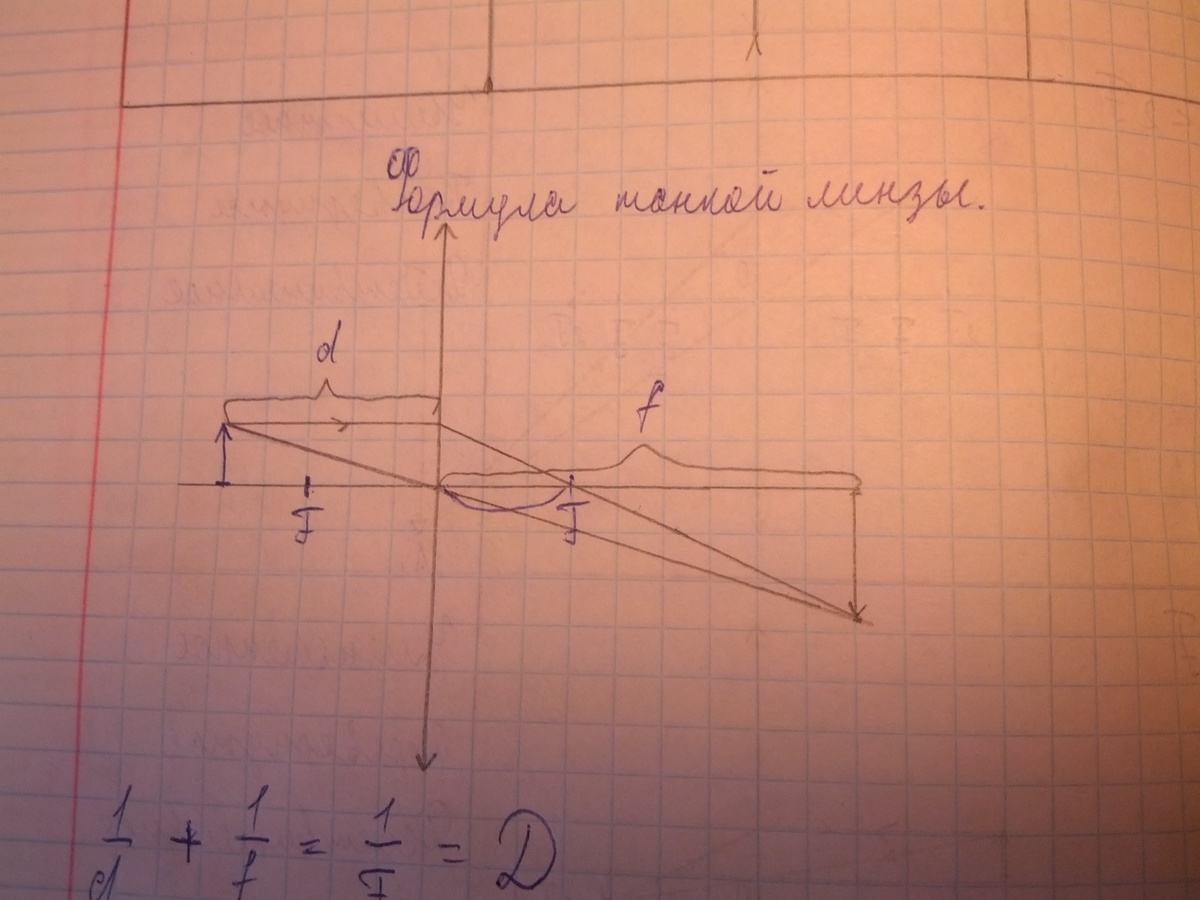 Формула тонкой линзы.
d
f
F F
1/d + 1/f = 1/F = D